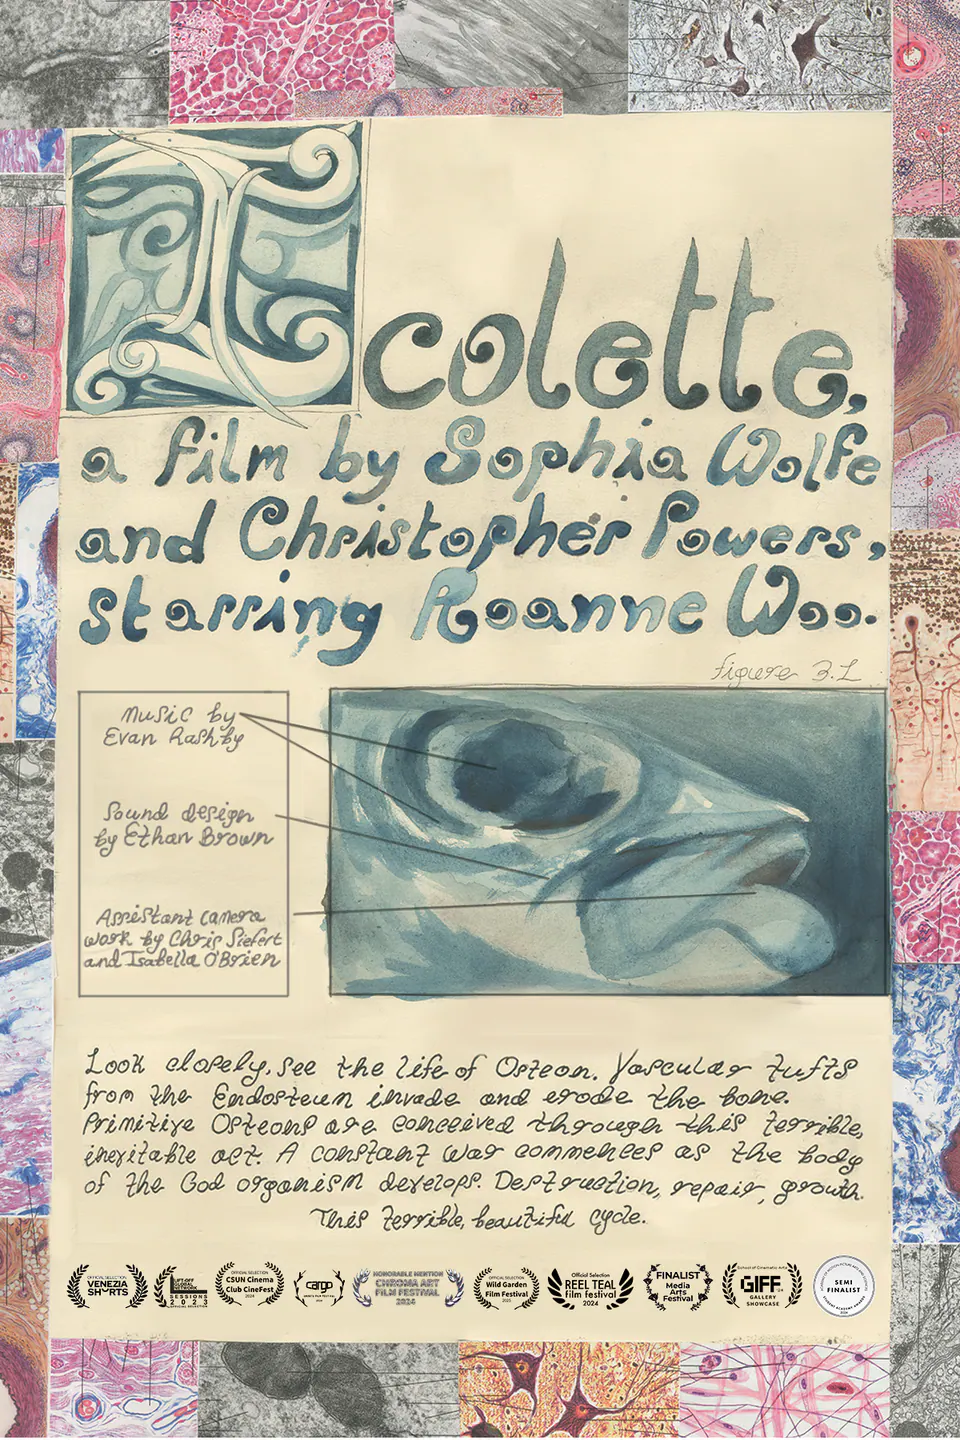 I colette,
a film by Sophia Wolfe
and Christopher Powers,
starring Roanne Woo.
figure 3.1
Music by
Evan Rashby
Sound design
by Ethan Brown
Assistant camera
work by Chris Siefert
and Isabella O'Brien
Look closely, see the life of Osteon. Vascular tufts
from the Endosteum invade and erode the bone.
Primitive Osteons are conceived through this terrible,
inevitable act. A constant war commences as the body
of the God organism develops. Destruction, repair, growth.
This terrible, beautiful cycle.
OFFICIAL SELECTION
VENEZIA
SHORTS
LIFT-OFF
GLOBAL
NETWORK
SESSIONS
2023
OFFICIAL SELECTION
CSUN Cinema
Club CineFest
2024
cargo
HONORABLE MENTION
CHROMA ART
FILM FESTIVAL
2024
OFFICIAL SELECTION
Wild Garden
Film Festival
2023
Official Selection
REEL TEAL
film festival
2024
FINALIST
Media
Arts
Festival
School of Cinematic Arts
GIFF
GALLERY
SHOWCASE
SEMI
FINALIST